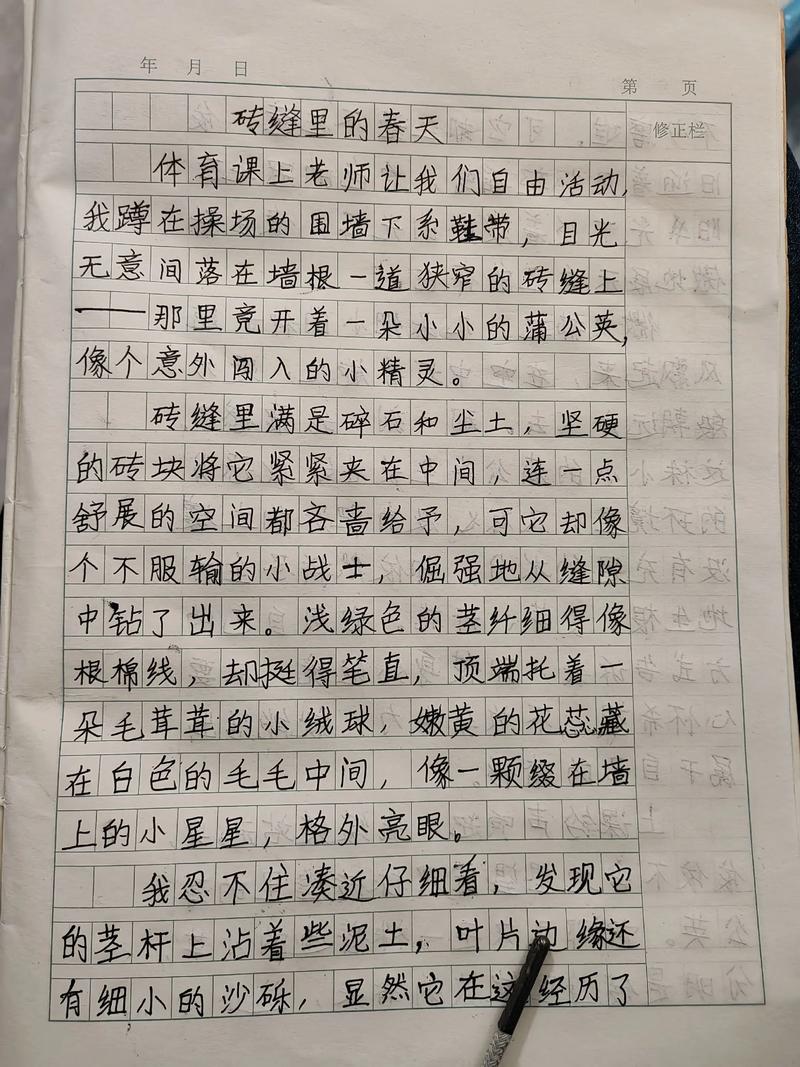 年 月 日
第 页
砖缝里的春天
修正栏
体育课上老师让我们自由活动,
我蹲在操场的围墙下系鞋带，目光
无意间落在墙根一道狭窄的砖缝上
——那里竟开着一朵小小的蒲公英,
像个意外闯入的小精灵。
砖缝里满是碎石和尘土，坚硬
的砖块将它紧紧夹在中间，连一点
舒展的空间都吝啬给予，可它却像
个不服输的小战士，倔强地从缝隙
中钻了出来。浅绿色的茎纤细得像
根棉线，却挺得笔直，顶端托着一
朵毛茸茸的小绒球，嫩黄的花蕊藏
在白色的毛毛中间，像一颗缀在墙
上的小星星，格外亮眼。
我忍不住凑近仔细看，发现它
的茎杆上沾着些泥土，叶片边缘还
有细小的沙砾，显然它在这经历了